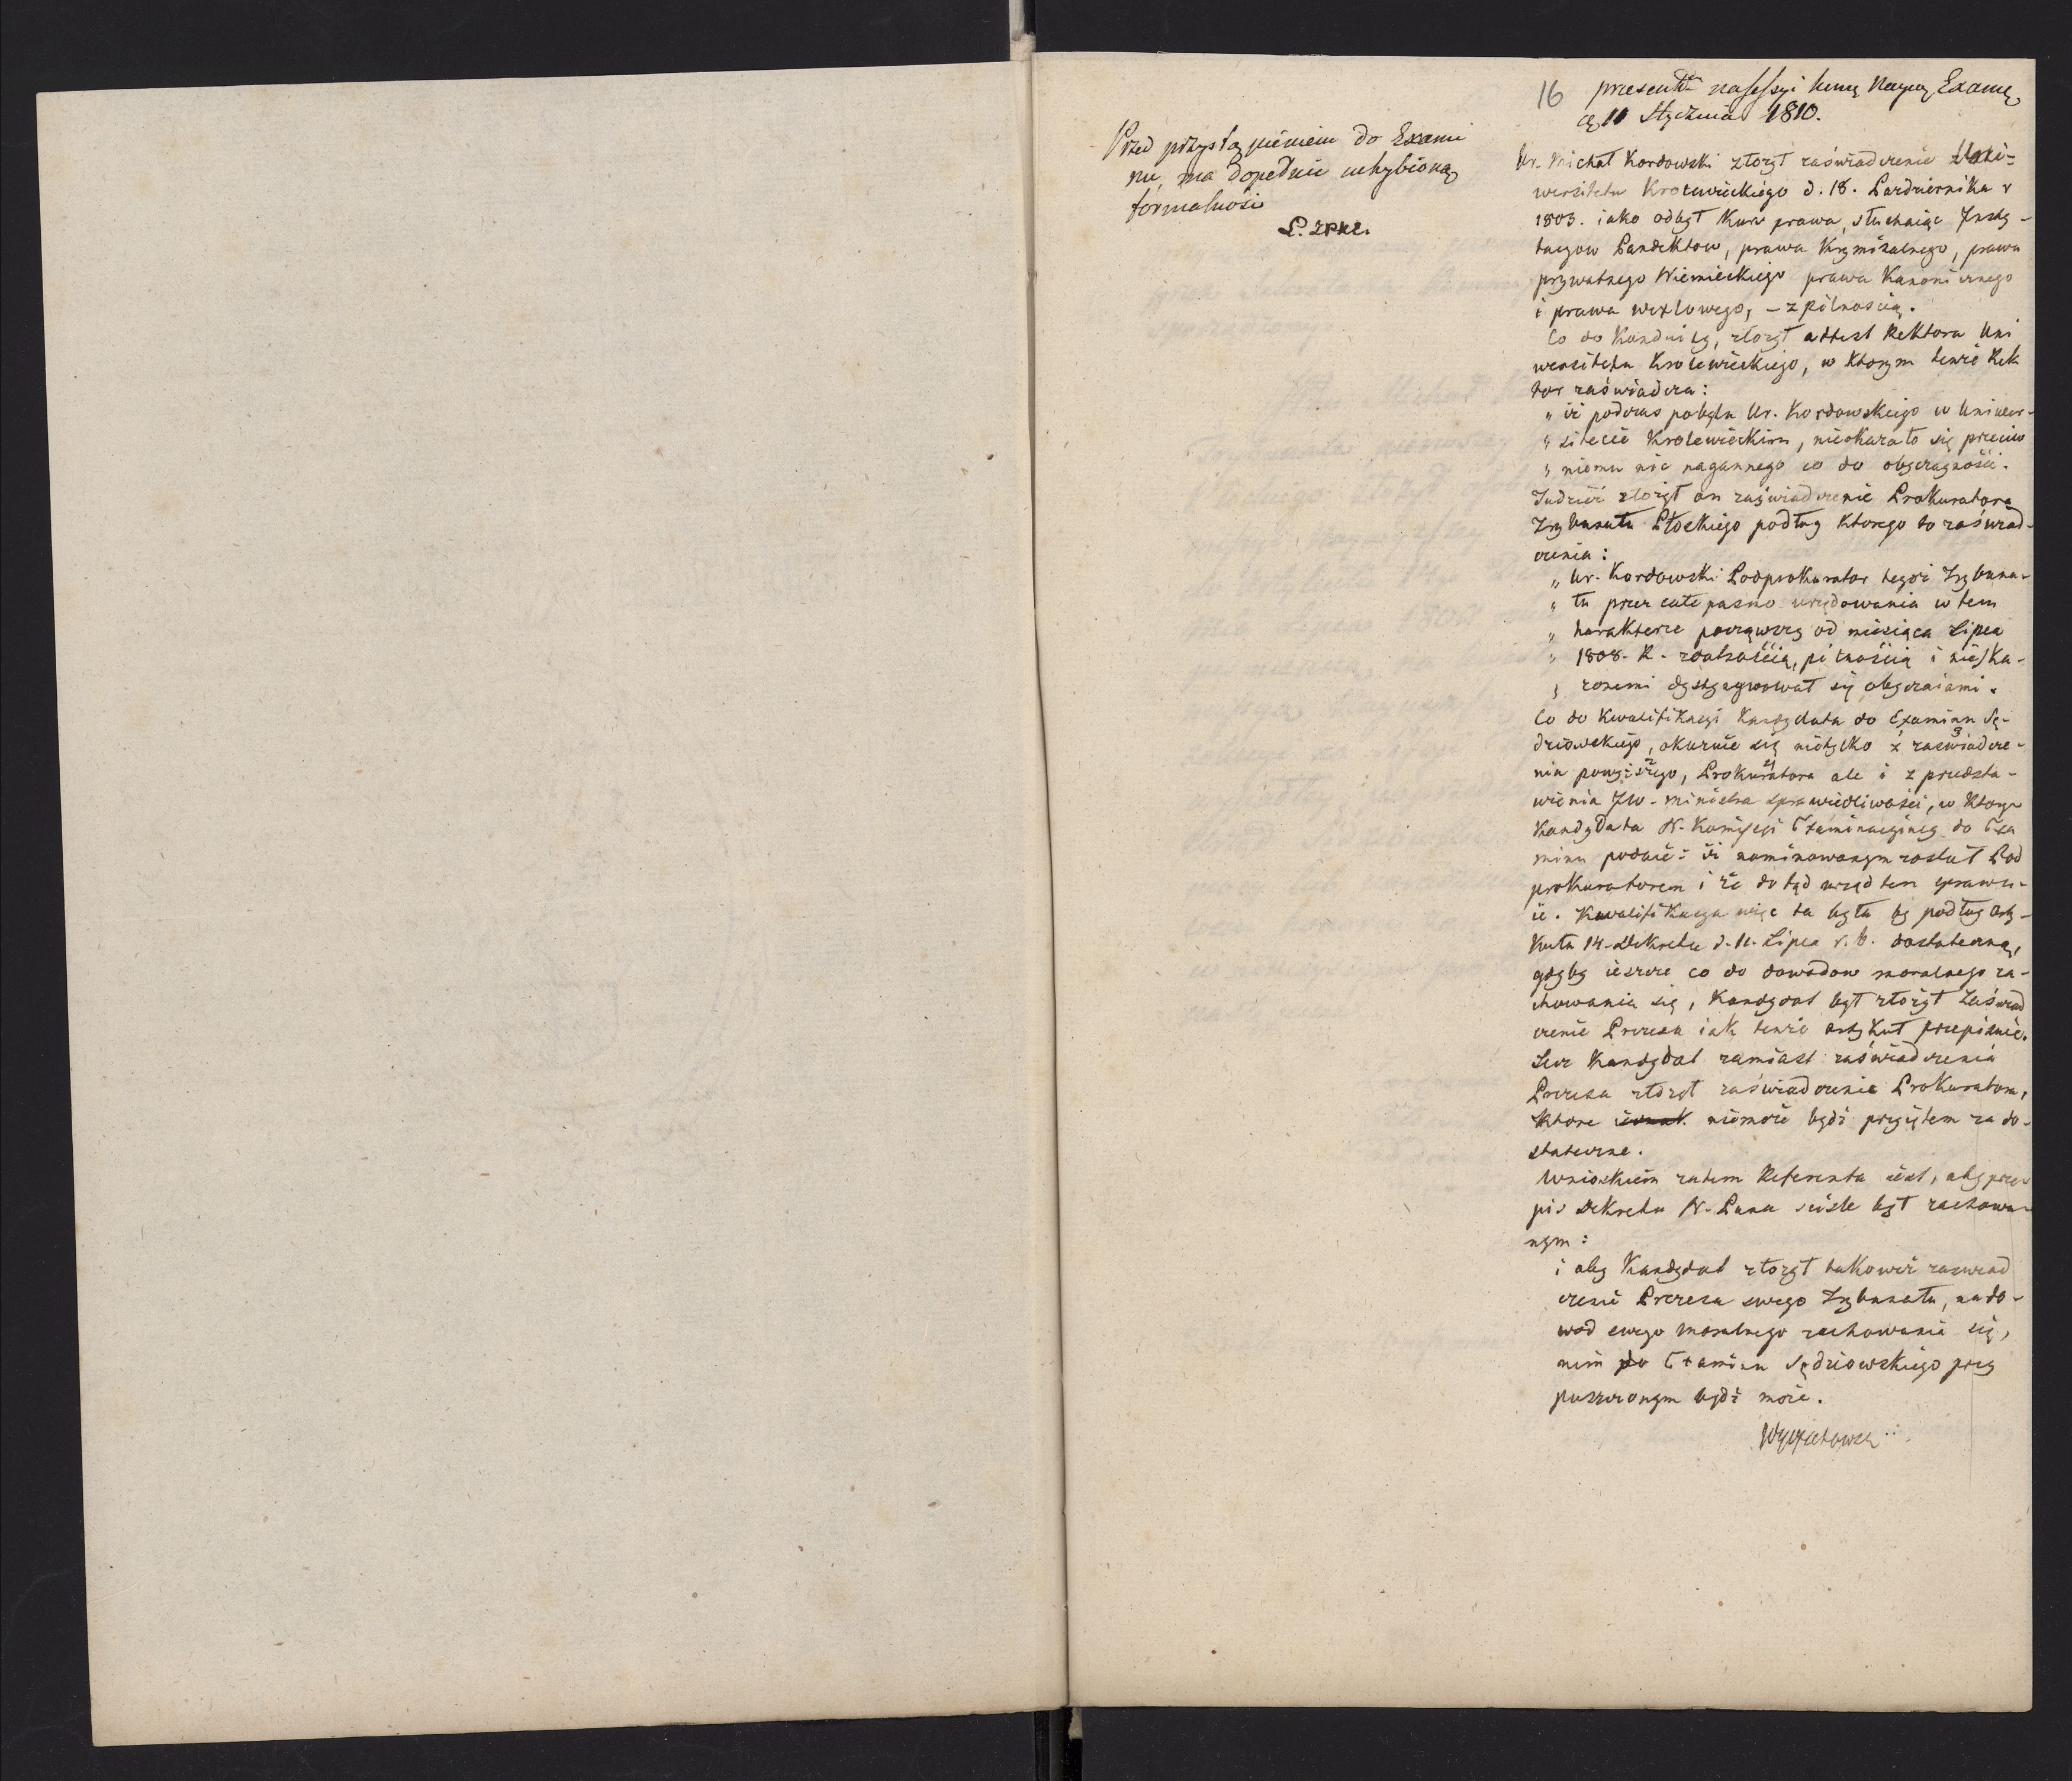 16 praesent na sessyi
10 Stycznia 1810.
Przed przystąpieniem do Exami
nu, ma dopełnić uchybioną
formalność
Ur. Michał Kordowski złożył zaświadczenie Uni=
wersitetu Krolewieckiego d. 18. Pazdziernika r
1803. iako odbył Kurs prawa, słuchaiąc Insty-
tucyow Pandektow, prawa Kryminalnego, prawa
prywatnego Niemieckiego prawa Kanonicznego
i prawa wexlowego, – z pilnoscią.
Co do Konduity, złożył attest Rektora Uni
wersitetu Krolewieckiego, w ktorym tenże Rek
tor zaświadcza:
„ iż podczas pobytu Ur. Kordowskiego w Uniwer-
„ sitecie Krolewieckim, nieokazało się przeciw
„ niemu nic nagannego co do obyczayności.
Tudzież złożył on zaświadczenie Prokuratora
Trybunału Płockiego podług ktorego to zaświad-
czenia:
„ Ur. Kordowski Podprokurator tegoż Trybuna-
„ łu przez całe pasmo urzędowania w tem
„ harakterze począwszy od miesiąca Lipca
„ 1808. R. zdatnością, pilnością i nieska-
„ zonemi dystyngwował się obyczaiami.
Co do Kwalifikacyi Kandydata do Examinu Sę-
dziowskiego, okazuie się nietylko z zaświadcze-
nia powyższego, Prokuratora ale i z przedsta-
wienia JW. Ministra sprawiedliwości, w ktorym
Kandydata N. Komissyi Examinacyiney do Exa
minu podaie: iż nominowanym został Pod
prokuratorem i że dotąd urząd ten sprawu-
ie. Kwalifikacya więc ta była by podług Arty-
kułu 14. Dekretu d. 11. Lipca r. b. dostateczną,
gdyby ieszcze co do dowodow moralnego za-
chowania się, Kandydat był złożył Zaświad
czenie Prezesa iak tenże artykuł przepisuie.
Lecz Kandydat zamiast zaświadczenia
Prezesa złożył zaświadczenie Prokuratora,
ktore niemoże bydź przyiętem za do-
stateczne.
Wnioskiem zatem Referenta iest, aby prze-
pis Dekretu N. Pana ściśle był zachowa-
nym:
i aby Kandydat złożył takoweż zaswiad
czenie Prezesa swego Trybunału, na do-
wod swego moralnego zachowania się,
nim do Examinu Sędziowskiego przy
puszczonym bydź może.